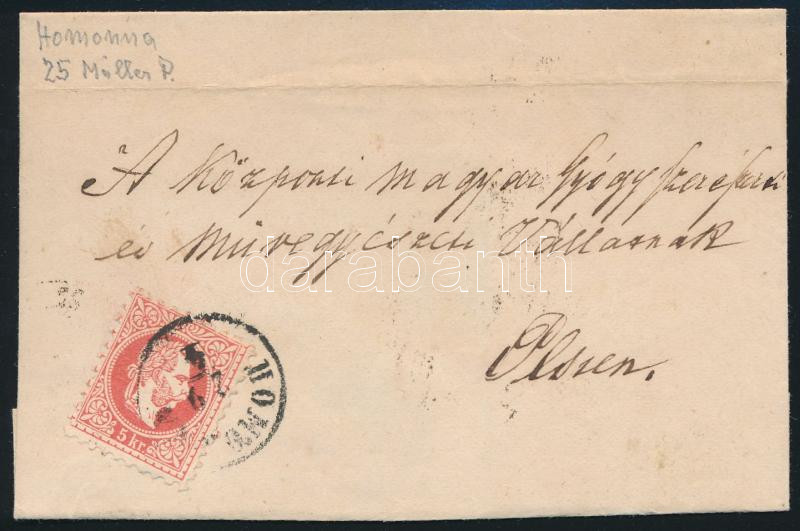 Homonna
25 Müller P.
A Központi magyar Gyógyszerészeti
és művegyészeti Vállatnak
darabanth
Pesten.
5 kr.
HOMO